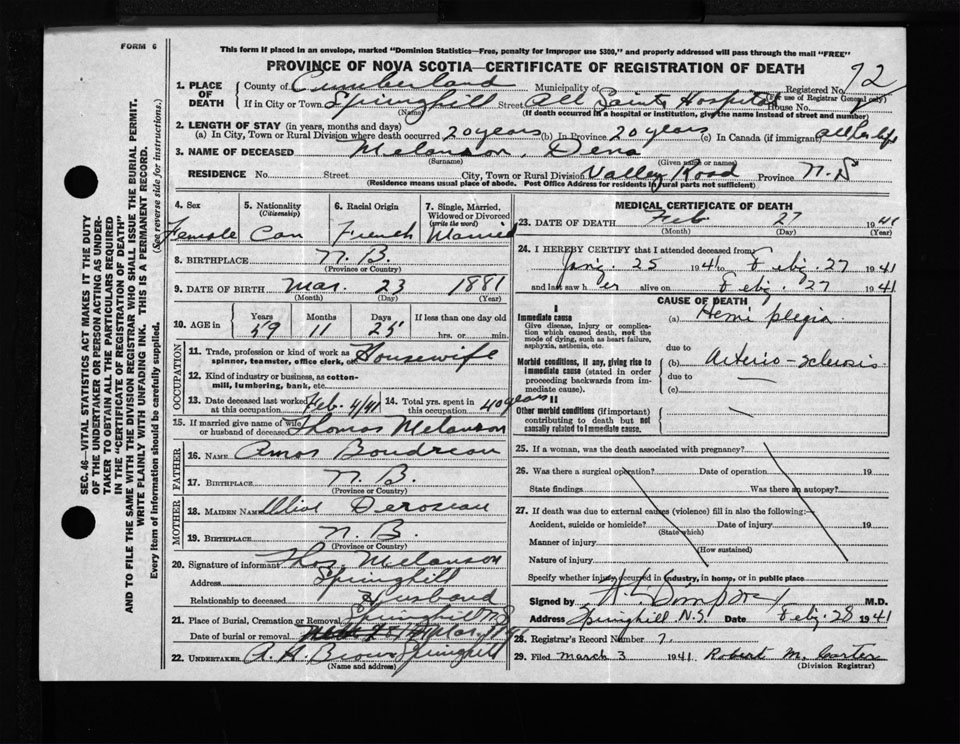 FORM 6
This form if placed in an envelope, marked "Dominion Statistics—Free, penalty for improper use $300," and properly addressed will pass through the mail "FREE"
PROVINCE OF NOVA SCOTIA—CERTIFICATE OF REGISTRATION OF DEATH
1. PLACE OF DEATH
County of Cumberland Municipality of Registered No. 72
(For use of Registrar General only)
If in City or Town Springhill Street All Saints Hospital House No.
(Name) (If death occurred in a hospital or institution, give the name instead of street and number)
2. LENGTH OF STAY (in years, months and days)
(a) In City, Town or Rural Division where death occurred 20 years (b) In Province 20 years (c) In Canada (if immigrant) all her life
3. NAME OF DECEASED Melanson, Dena
(Surname) (Given name or names)
RESIDENCE No. Street City, Town or Rural Division Valley Road Province N.S
(Residence means usual place of abode. Post Office Address for residents in rural parts not sufficient)
4. Sex
Female
5. Nationality
(Citizenship)
Can
6. Racial Origin
French
7. Single, Married, Widowed or Divorced
(write the word)
Married
8. BIRTHPLACE N.B.
(Province or Country)
9. DATE OF BIRTH Mar. 23 1881
(Month) (Day) (Year)
10. AGE in Years Months Days If less than one day old
59 11 25 hrs. or min.
OCCUPATION
11. Trade, profession or kind of work as spinner, teamster, office clerk, etc. Housewife
12. Kind of industry or business, as cotton-mill, lumbering, bank, etc.
13. Date deceased last worked at this occupation Feb. 4/41 14. Total yrs. spent in this occupation 40 years
15. If married give name of wife or husband of deceased Thomas Melanson
FATHER
16. NAME Amos Boudreau
17. BIRTHPLACE N.B.
(Province or Country)
MOTHER
18. MAIDEN NAME
19. BIRTHPLACE N.B.
(Province or Country)
20. Signature of informant Thos. Melanson
Address Springhill
Relationship to deceased Husband
21. Place of Burial, Cremation or Removal Springhill N.S.
Date of burial or removal
22. UNDERTAKER A. H. Brown Springhill
(Name and address)
MEDICAL CERTIFICATE OF DEATH
23. DATE OF DEATH Feb 27 1941
(Month) (Day) (Year)
24. I HEREBY CERTIFY that I attended deceased from
25 1941 to Feby. 27 1941
and last saw her alive on Feby. 27 1941
CAUSE OF DEATH
I
Immediate cause
Give disease, injury or complication which caused death, not the mode of dying, such as heart failure, asphyxia, asthenia, etc.
(a) Hemi plegia
due to
Morbid conditions, if any, giving rise to immediate cause (stated in order proceeding backwards from immediate cause).
(b) Arterio-sclerosis
due to —
(c)
II
Other morbid conditions (if important) contributing to death but not causally related to immediate cause.
—
25. If a woman, was the death associated with pregnancy?
26. Was there a surgical operation? Date of operation 19
State findings Was there an autopsy?
27. If death was due to external causes (violence) fill in also the following:—
Accident, suicide or homicide? Date of injury 19
(State which)
Manner of injury
(How sustained)
Nature of injury
Specify whether injury occurred in industry, in home, or in public place
Signed by M.D.
Address Springhill N.S. Date Feby. 28 1941
28. Registrar's Record Number 7.
29. Filed March 3 1941 Robert M. Carter
(Division Registrar)
SEC. 46—VITAL STATISTICS ACT MAKES IT THE DUTY
OF THE UNDERTAKER OR PERSON ACTING AS UNDER-
TAKER TO OBTAIN ALL THE PARTICULARS REQUIRED
IN THE "CERTIFICATE OF REGISTRATION OF DEATH"
AND TO FILE THE SAME WITH THE DIVISION REGISTRAR WHO SHALL ISSUE THE BURIAL PERMIT.
WRITE PLAINLY WITH UNFADING INK. THIS IS A PERMANENT RECORD.
Every item of information should be carefully supplied. (See reverse side for instructions.)